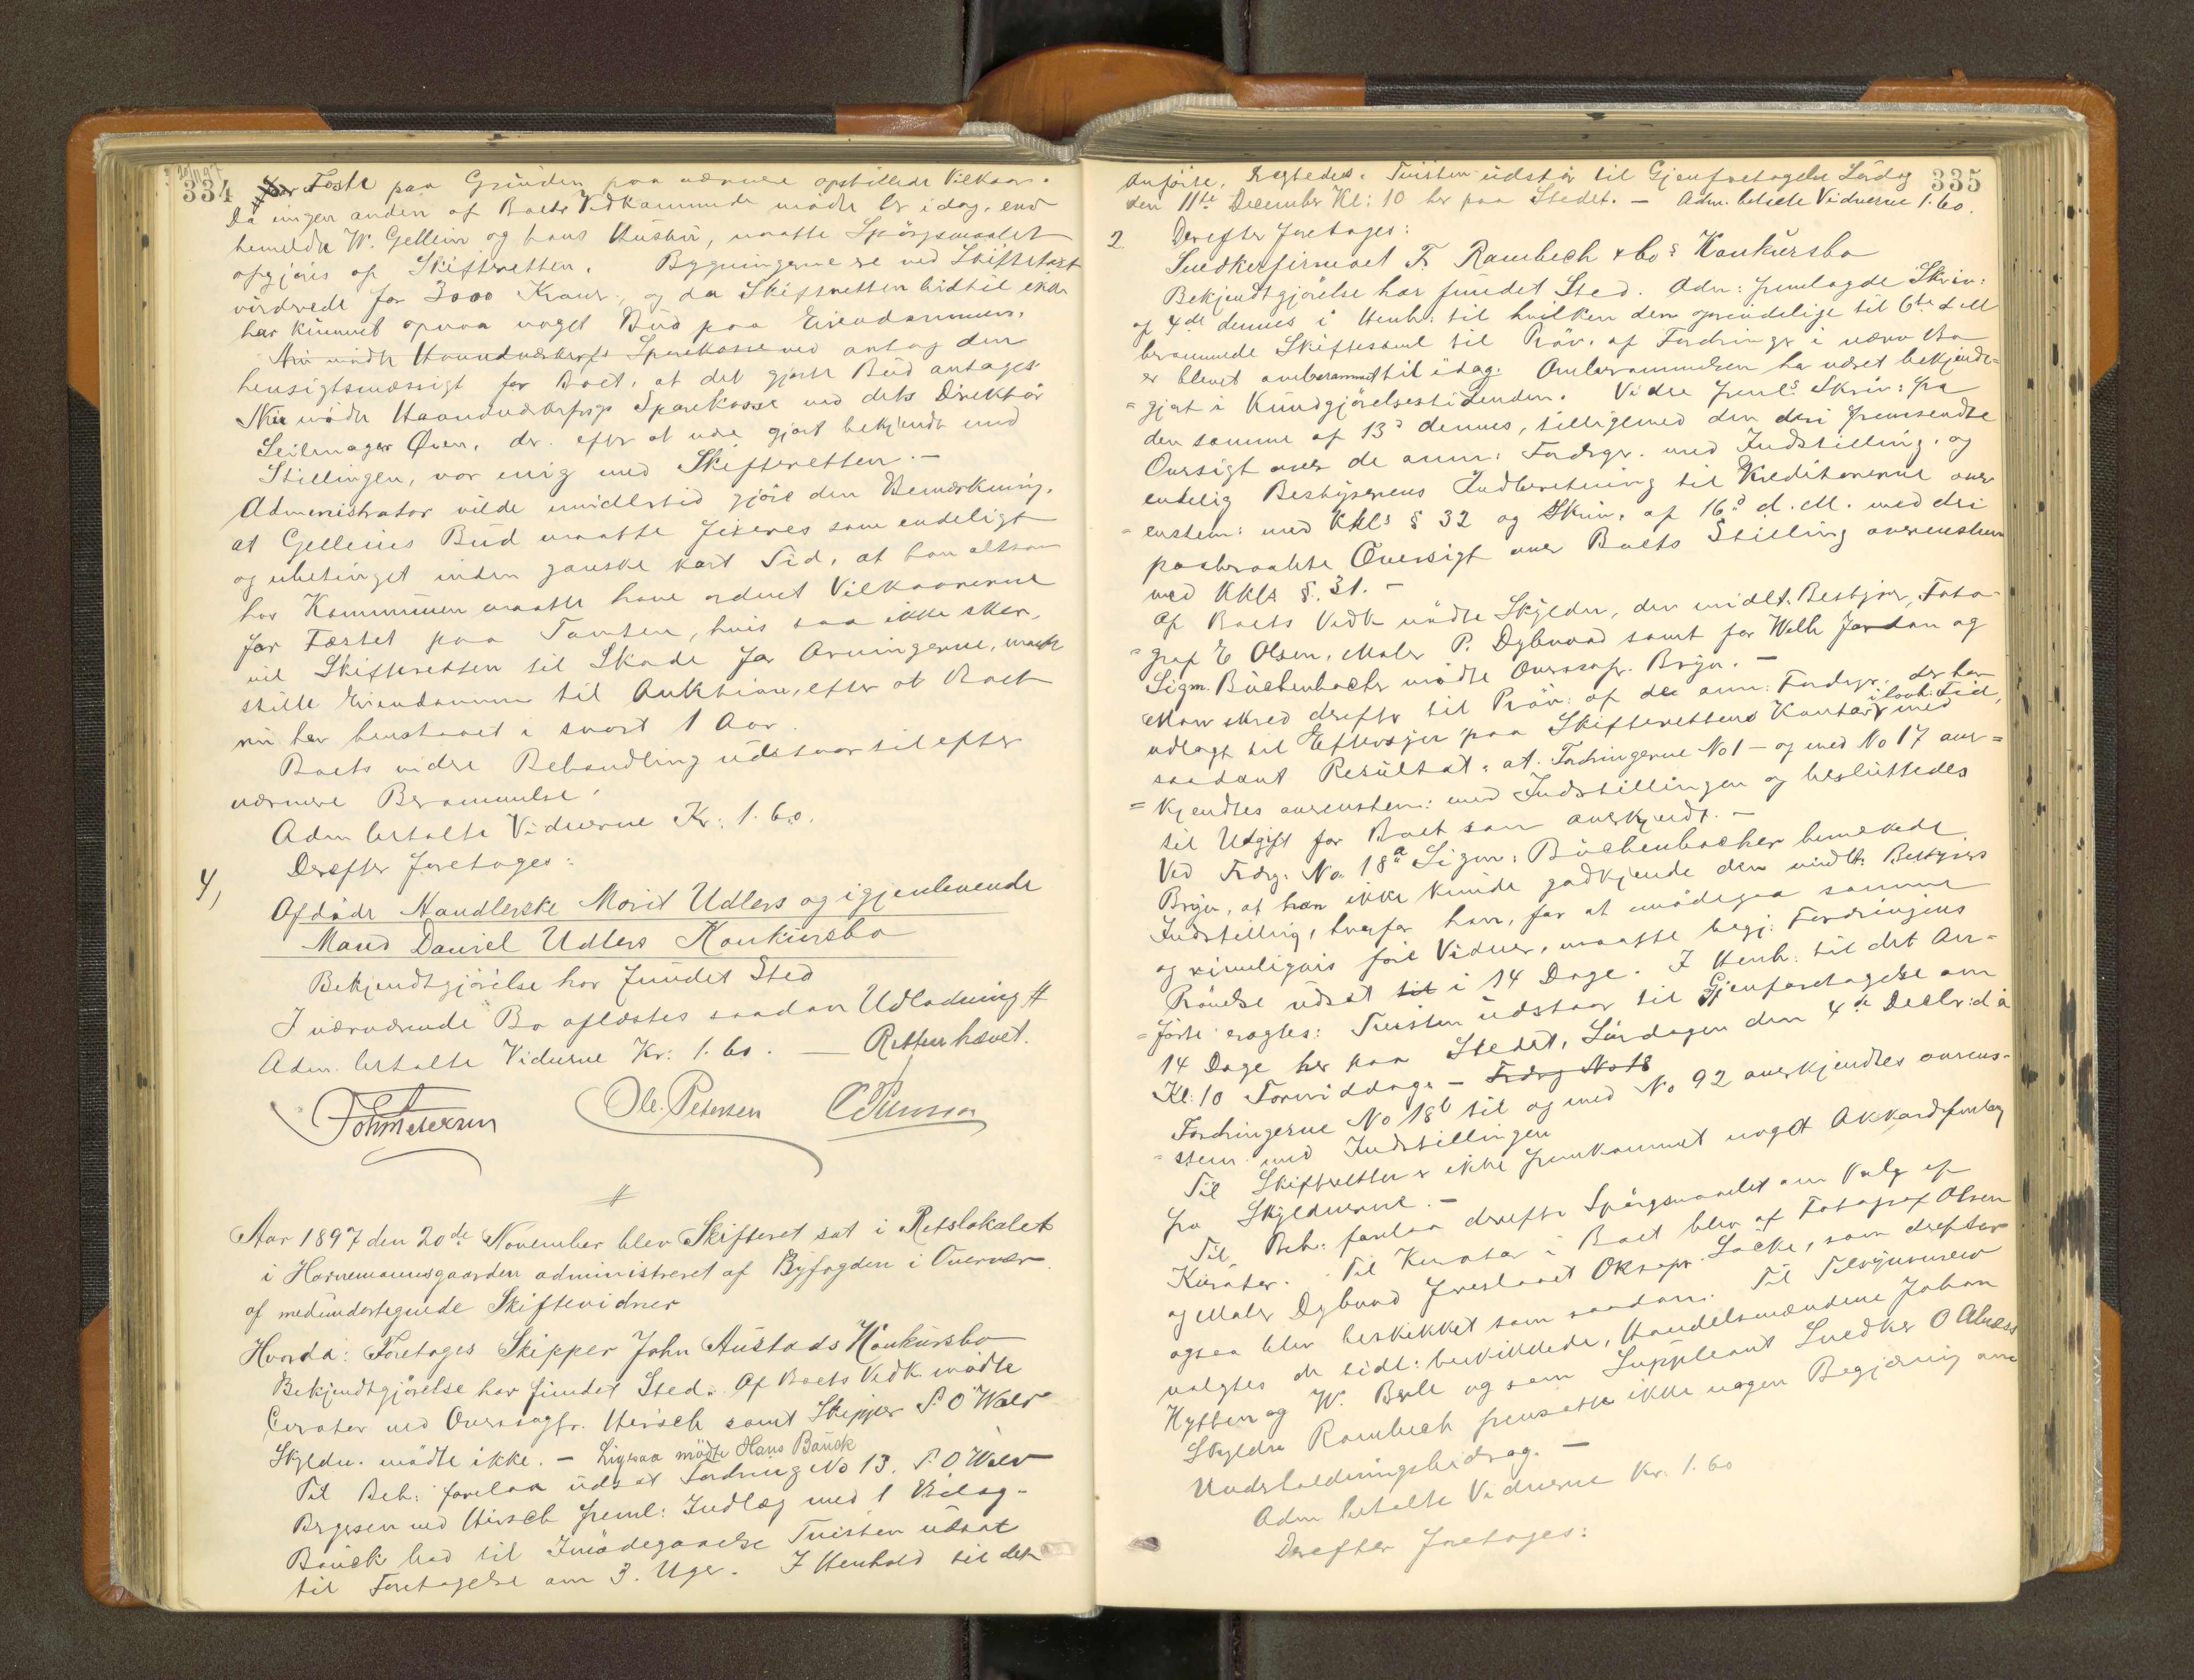 20/11 97
334
for Feste paa Grunden paa nærmere opstillede Vilkaar.
Da ingen anden af Boets Vedkommende mødte her idag, end
bemeldte W. Gellein og hans Hustru, maatte Spørgsmaalet
afgjøres af Skifteretten. Bygningerne er ved Skiftetaxt
vurderede for 3000 Kroner, og da Skifteretten hidtil ikke
har kunnet opnaa noget Bud paa Eiendommen,
Nu mødte Haandværkerfs Sparekasse ved antog den
hensigtsmæssigt for Boet, at det gjorte Bud antages.
Nu mødte Haandværkerfgs Sparekasse ved dets Direktør
Seilmager Øien, der efter at være gjort bekjendt med
Stillingen, var enig med Skifteretten.—
Administrator vilde imidlertid gjøre den Bemærkning,
at Gelleins Bud maatte fixeres som endeligt
og ubetinget inden ganske kort Tid, at han altsaa
hos Kommunen maatte have ordnet Vilkaarerne
for Festet paa Tomten, hvis saa ikke sker,
vil Skifteretten til Skade for Arvingerne, maatte
stille Eiendommen til Auktion, efter at Boet
nu har henstaaet i snart 1 Aar.
Boets videre Behandling udstaar til efter
nærmere Berammelse.
Adm betalte Vidnerne Kr: 1.60.
Derefter foretages:
4,
Afdøde Handlerske Morit Udlers og igjenlevende
Mand Daniel Udlers Konkursbo
Bekjendtgjørelse har fundet Sted
I nærværende Bo oplæstes saadan Udlodning #
Adm. betalte Vidnerne Kr: 1.60. — Retten hævet.
Ole. Petersen
#
Aar 1897 den 20de November blev Skifteret sat i Retslokalet
i Hornemannsgaarden administreret af Byfogden i Overvær
af medundertegnede Skiftevidner
Hvorda: Foretages Skipper John Austads Konkursbo
Bekjendtgjørelse har fundet Sted. Af Boets Vedk mødte
Curator ved Overssagfr. Hirsch samt Skipper P. O Wold
Skyldn. mødte ikke. — Ligesaa mødte Hans Bauck
Til Beh: forelaa udsat Fordring No 13. P. O Wold
Brgesen ved Hirsch freml: Indlæg med 1 Bilag—
Bauck bad til Imødegaaelse Tvisten udsat
til Foretagelse om 3. Uger. I Henhold til det
335
anførte, eragtedes. Tvisten udstår til Gjenforetagelse Lørdag
den 11te December Kl: 10 her paa Stedet. — Adm. betalte Vidnerne 1.60.
2.
Derefter foretages:
Snedkerfirmaet F. Rambech & Cos Konkursbo
Bekjendtgjørelse har fundet Sted. Adm: fremlagde Skriv:
af 4de dennes i Henh: til hvilken den oprindelige til 6te d M
berammede Skiftesaml til Prøv. af Fordringer i nærv Bo
er blevet omberammet til idag. Omberammelsen har været bekjendt=
=gjort i Kundgjørelsestidenden. Videre freml: Skriv: fra
den samme af 13d dennes, tilligemed den deri fremsendte
Oversigt over de anm: Fordrgr. med Indstilling, og
endelig Bestyrerens Indberetning til Kreditorerne over
=enstem: med Kkls § 32 og Skriv. af 16d d. M. med dri
paaberaabte Oversigt over Boets Stilling overenstem
med Kkls §. 31.—
Af Boets Vedk mødte Skyldn, den midlt. Bestyrer, Foto=
=graf E Olsen, Maler P. Dybwad samt for Wilh Jordan og
Sigm. Büchenbacher mødte Overssafr. Bryn.—
Man skred derefter til Prøv: af de anm: Fordgr. der har
i lovb: Tid,
udlagt til Eftersyn paa Skifterettens Kontor med
saadant Resultat, at. Fordringerne No 1 — og med No 17 aner=
=kjendtes overenstem: med Indstillingen og besluttedes
til Udgift for Boet som anerkjendt.—
Ved Fodrg. No 18a Sigm: Büchenbacher bemærkede
Bryn, at han ikke kunde godkjende den midlt: Bestyrers
Indstilling, hvorfor han, for at imødegaa samme
og rimeligvis føre Vidner, maatte begj: Fordringens
Prøvelse udsat til i 14 Dage. I Henh: til det An=
=førte eragtes: Tvisten udstaar til Gjenforetagelse om
14 Dage her paa Stedet, Lørdagen den 4de Decbr: d å
Kl: 10 Formiddag. — Fodrg No 18
Fordringerne No 18b til og med No 92 anerkjendtes overens=
=stem. med Indstillingen
Til Skifteretten er ikke fremkommet noget Akkordforslag
fra Skyldnerne.—
Til Beh: forelaa derefter Spørgsmaalet om Valg af
Kurator. Til Kurator i Boet blev af Fotograf Olsen
og Maler Dybwad foreslaaet Oksagfr. Lacke, som derefter
ogsaa blev beskikket som saadan. Til Tilsynsmænd
valgtes de tidl: beskikkede, Handelsmændene Johan
Hyttens og W. Berle og som Suppleant Snedker O Alnæss
Skyldn Rambech fremsatte ikke nogen Begjæring om
Underholdningsbidrag.—
Adm betalte Vidnerne Kr. 1.60
Derefter foretages: